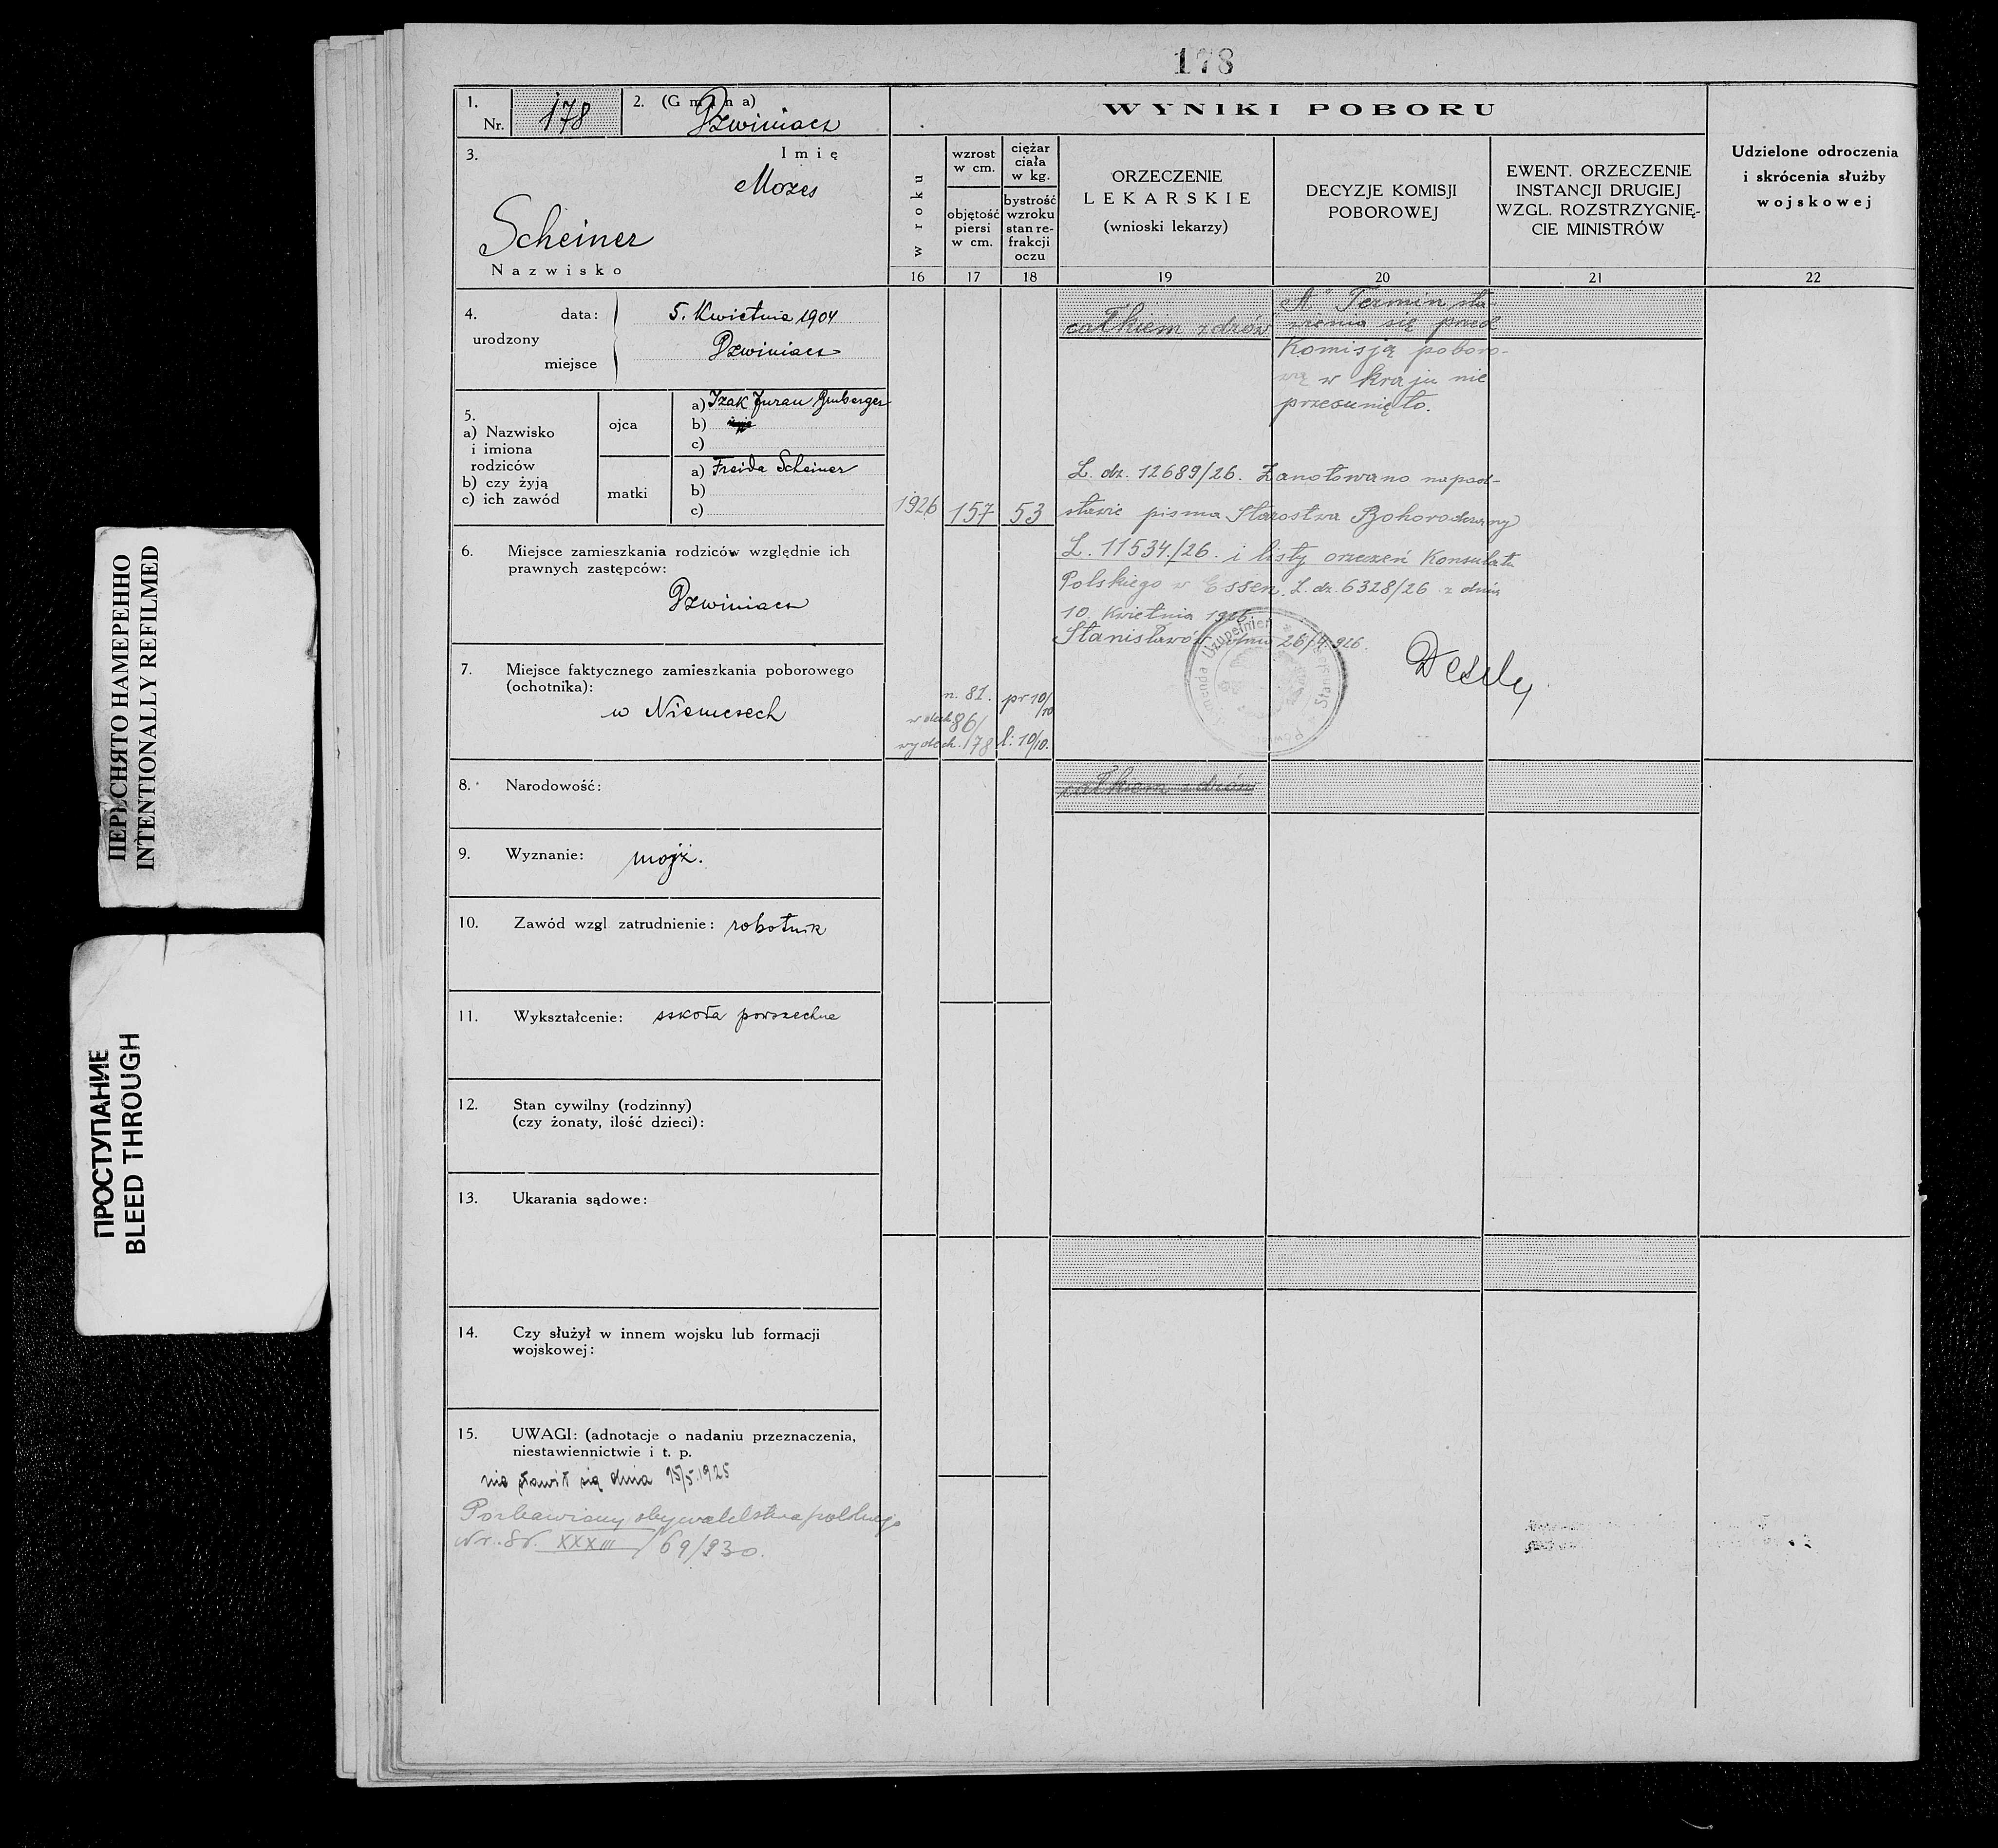 178
1. Nr. 178
2. (Gmina) Dzwiniacz
3. Imię
Mozes
Scheiner
Nazwisko
4. urodzony
data: 5. Kwietnia 1904
miejsce Dzwiniacz
5.
a) Nazwisko
i imiona
rodziców
b) czy żyją
c) ich zawód
ojca
a) Izak Gruberger
b)
c)
matki
a) Freida Scheiner
b)
c)
6. Miejsce zamieszkania rodziców względnie ich
prawnych zastępców:
Dzwiniacz
7. Miejsce faktycznego zamieszkania poborowego
(ochotnika):
w Niemczech
8. Narodowość:
9. Wyznanie: mojż.
10. Zawód wzgl zatrudnienie: robotnik
11. Wykształcenie: szkoła powszechna
12. Stan cywilny (rodzinny)
(czy żonaty, ilość dzieci):
13. Ukarania sądowe:
14. Czy służył w innem wojsku lub formacji
wojskowej:
15. UWAGI: (adnotacje o nadaniu przeznaczenia,
niestawiennictwie i t. p.
nie stawił się dnia 15/5.1925
Pozbawiony obywatelstwa polskiego
Nr. XXXIII/69/930.
WYNIKI POBORU
w roku
16
wzrost
w cm.
objętość
piersi
w cm.
17
ciężar
ciała
w kg.
bystrość
wzroku
stan re-
frakcji
oczu
18
ORZECZENIE
LEKARSKIE
(wnioski lekarzy)
19
DECYZJE KOMISJI
POBOROWEJ
20
EWENT. ORZECZENIE
INSTANCJI DRUGIEJ
WZGL. ROZSTRZYGNIĘ-
CIE MINISTRÓW
21
Udzielone odroczenia
i skrócenia służby
wojskowej
22
całkiem zdrów
"A" Termin sta-
wienia się przed
Komisją poboro-
wą w kraju nie
przesunięto.
1926
157
53
L. dz. 12689/26. Zanotowano na pod-
stawie pisma Starostwa Bohorodczany
L. 11534/26. i listy orzeczeń Konsulatu
Polskiego w Essen. L. dz. 6328/26 z dnia
10. Kwietnia 1926.
Stanisławów dnia 26/4.926.
n. 81.
wdech. 86/
wydech. /78
pr 10/10
l: 10/10.
całkiem zdrów
ПЕРЕСНЯТО НАМЕРЕННО
INTENTIONALLY REFILMED
ПРОСТУПАНИЕ
BLEED THROUGH